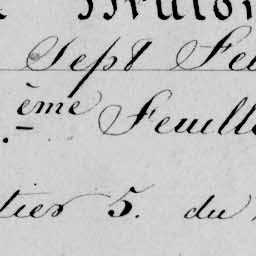 Sept Fe
ème Feuill
tier 5. du